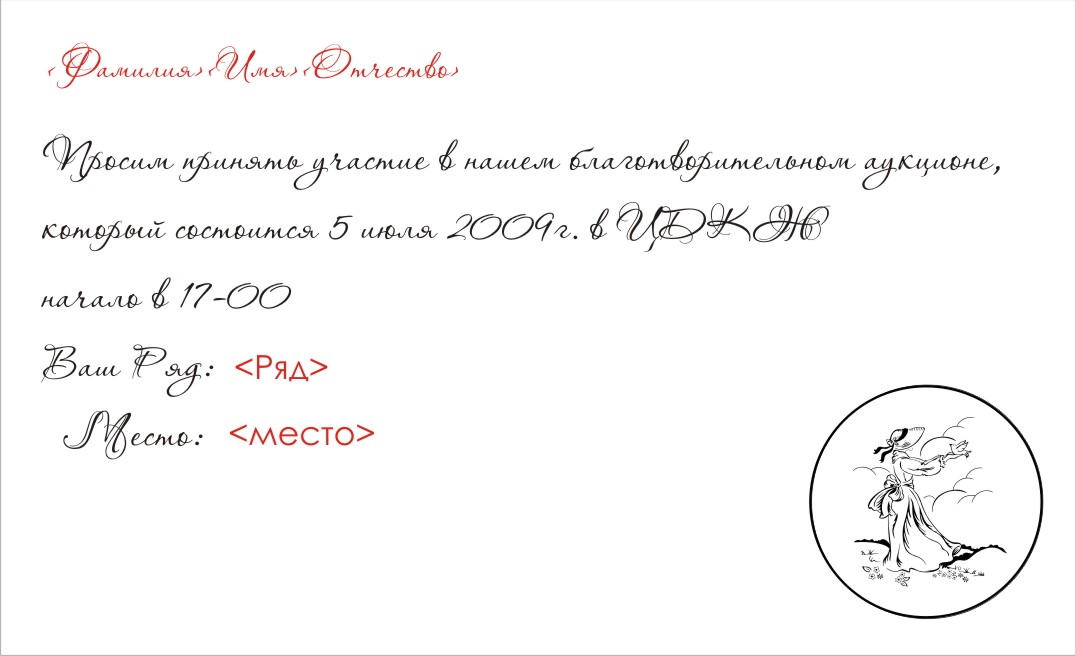 <Фамилия><Имя><Отчество>
Просим принять участие в нашем благотворительном аукционе,
который состоится 5 июля 2009г. в ЦДКЖ
начало в 17-00
Ваш Ряд: <Ряд>
Место: <место>